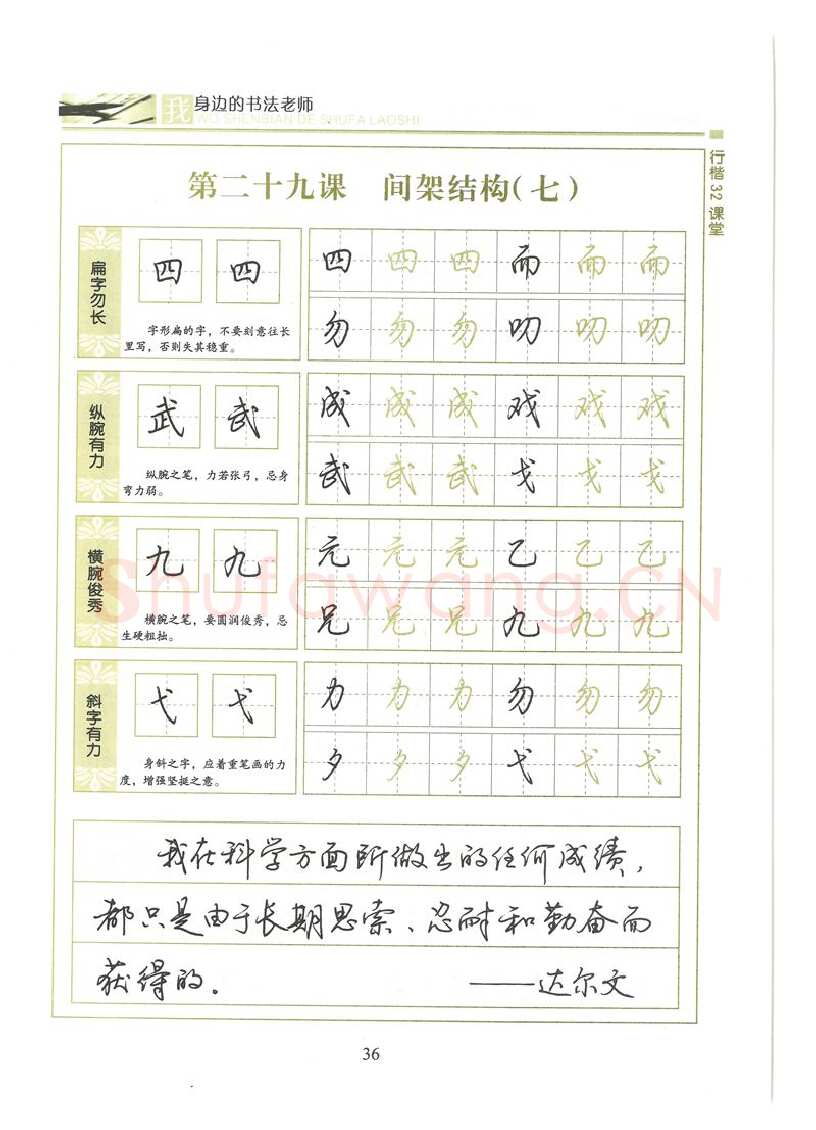 我身边的书法老师
WO SHENBIAN DE SHUFA LAOSHI
行楷32课堂
第二十九课 间架结构(七)
扁字勿长
四 四
字形扁的字，不要刻意往长
里写，否则失其稳重。
四 四 四 而 而 而
勿 勿 勿 叨 叨 叨
纵腕有力
武 武
纵腕之笔，力若张弓。忌身
弯力弱。
成 成 成 戏 戏 戏
武 武 武 戈 戈 戈
横腕俊秀
九 九
横腕之笔，要圆润俊秀，忌
生硬粗拙。
元 元 元 乙 乙 乙
兄 兄 兄 九 九 九
斜字有力
弋 弋
身斜之字，应着重笔画的力
度，增强坚挺之意。
力 力 力 勿 勿 勿
夕 夕 夕 弋 弋 弋
我在科学方面所做出的任何成绩，
都只是由于长期思索、忍耐和勤奋而
获得的。 ——达尔文
36
Shufawang.CN